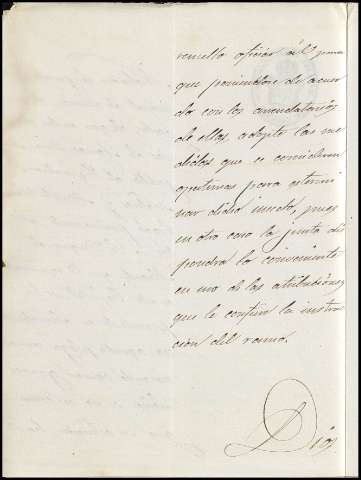 resuelto oficiar á U para
que poniendose de acuer
do con los arrendatarios
de ellas, adopte las me
didas que se consideren
oportunas para estermi
nar dicho insecto, pues
en otro caso la junta dis
pondrá lo conveniente
en uso de las atribuciones
que le confiere la instru
ción del ramo.
Dios